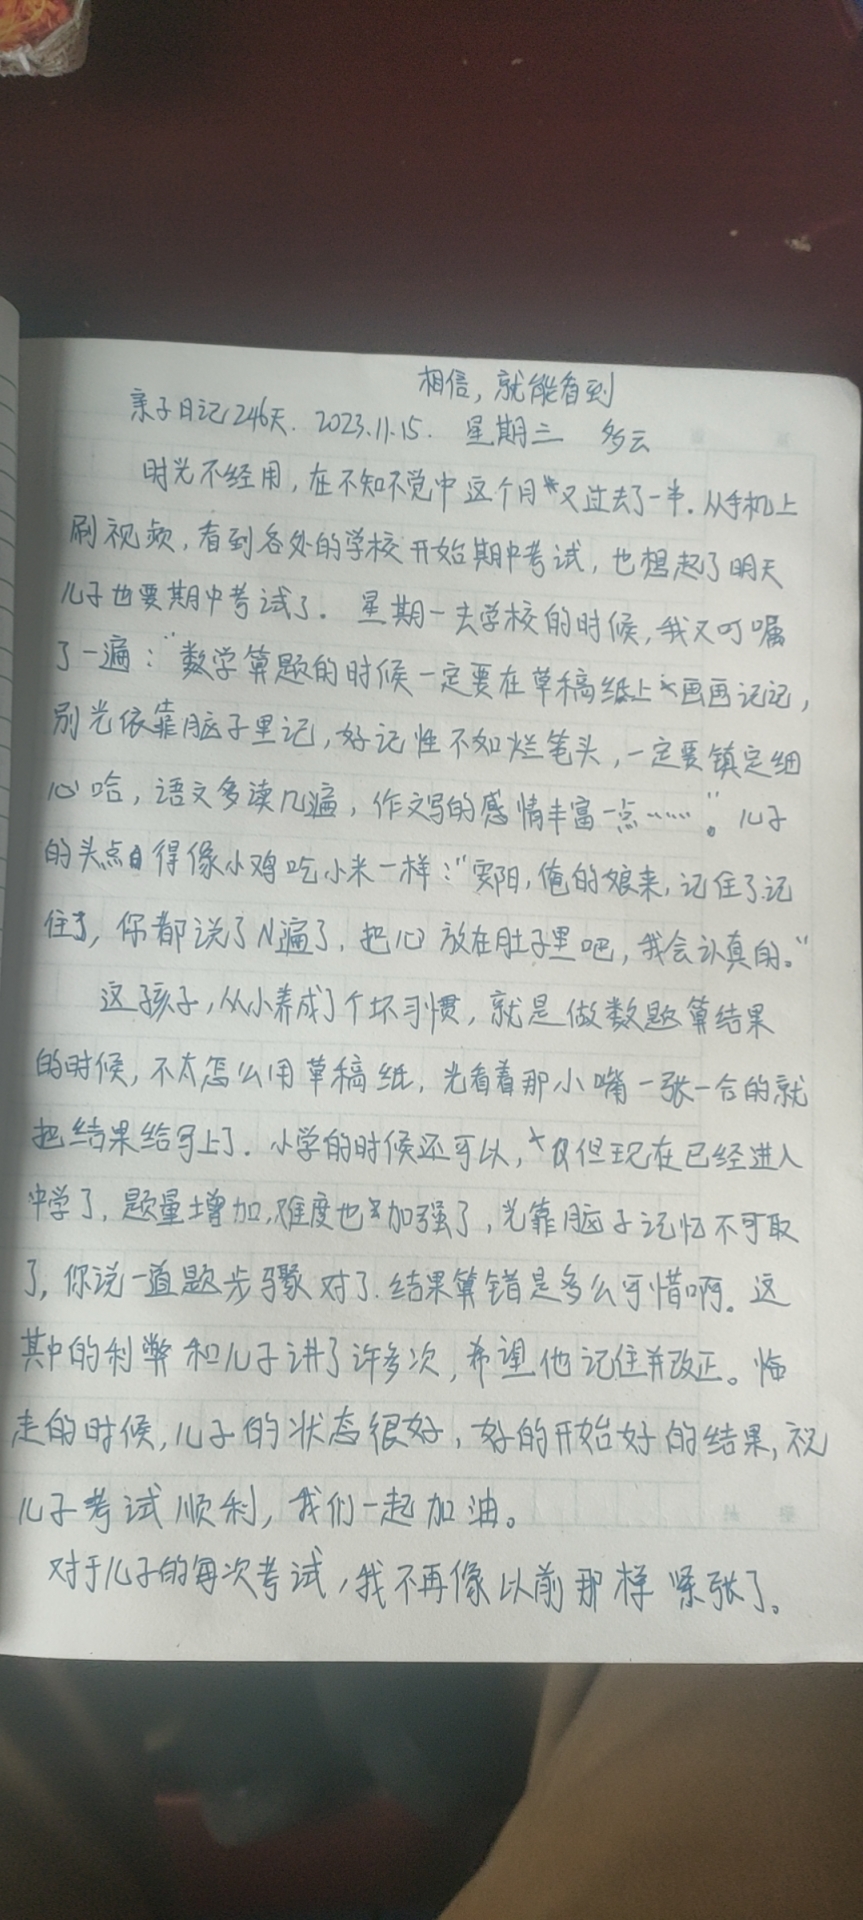 相信，就能看到
亲子日记246天. 2023.11.15. 星期三 多云
时光不经用，在不知不觉中这个月又过去了一半. 从手机上
刷视频，看到各处的学校开始期中考试，也想起了明天
儿子也要期中考试了. 星期一去学校的时候，我又叮嘱
了一遍：“数学算题的时候一定要在草稿纸上画画记记，
别光依靠脑子里记，好记性不如烂笔头，一定要镇定细
心哈，语文多读几遍，作文写的感情丰富一点……”。儿子
的头点得像小鸡吃小米一样：“阳，俺的娘来，记住了记
住了，你都说了N遍了，把心放在肚子里吧，我会认真的。”
这孩子，从小养成了个坏习惯，就是做数题算结果
的时候，不太怎么用草稿纸，光看着那小嘴一张一合的就
把结果给写上了. 小学的时候还可以，但现在已经进入
中学了，题量增加，难度也加强了，光靠脑子记忆不可取
了，你说一道题步骤对了.结果算错是多么可惜啊。这
其中的利弊和儿子讲了许多次，希望他记住并改正。临
走的时候，儿子的状态很好，好的开始好的结果，祝
儿子考试顺利，我们一起加油。
对于儿子的每次考试，我不再像以前那样紧张了。